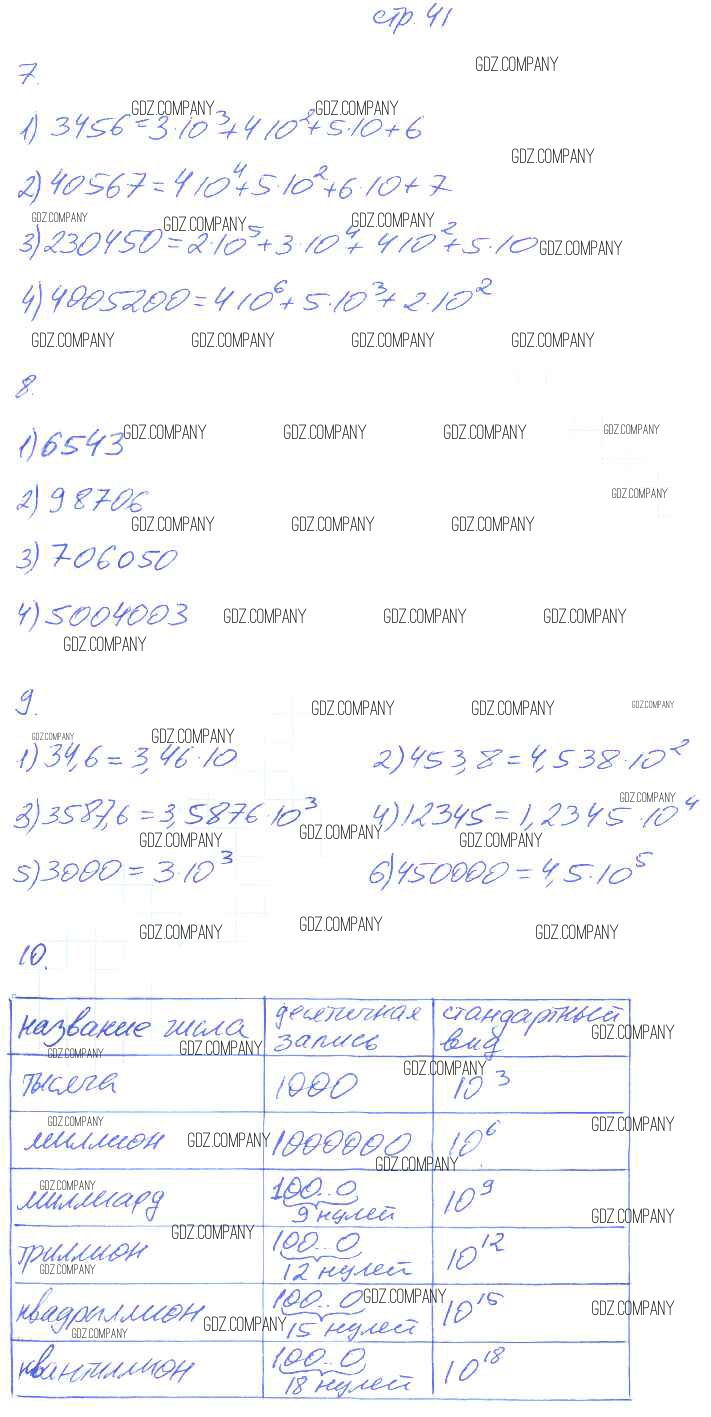 стр. 41
GDZ.COMPANY
7.
GDZ.COMPANY GDZ.COMPANY
1) 3456 = 3·10³+4 10²+5·10+6
GDZ.COMPANY
2) 40567 = 4 10⁴+5·10²+6·10+7
GDZ.COMPANY GDZ.COMPANY GDZ.COMPANY
3) 230450 = 2·10⁵+3·10⁴+4 10²+5·10 GDZ.COMPANY
4) 4005200 = 4 10⁶+5·10³+2·10²
GDZ.COMPANY GDZ.COMPANY GDZ.COMPANY GDZ.COMPANY
8.
1) 6543 GDZ.COMPANY GDZ.COMPANY GDZ.COMPANY GDZ.COMPANY
2) 98706 GDZ.COMPANY
GDZ.COMPANY GDZ.COMPANY GDZ.COMPANY
3) 706050
4) 5004003 GDZ.COMPANY GDZ.COMPANY GDZ.COMPANY
GDZ.COMPANY
9. GDZ.COMPANY GDZ.COMPANY GDZ.COMPANY
GDZ.COMPANY GDZ.COMPANY
1) 34,6 = 3,46·10 2) 453,8 = 4,538·10²
GDZ.COMPANY
3) 3587,6 = 3,5876·10³ 4) 12345 = 1,2345·10⁴
GDZ.COMPANY GDZ.COMPANY GDZ.COMPANY
5) 3000 = 3·10³ 6) 450000 = 4,5·10⁵
GDZ.COMPANY GDZ.COMPANY GDZ.COMPANY
10.
название числа десятичная запись стандартный вид GDZ.COMPANY
GDZ.COMPANY GDZ.COMPANY GDZ.COMPANY
тысяча 1000 10³
GDZ.COMPANY GDZ.COMPANY
миллион GDZ.COMPANY 1000000 10⁶
GDZ.COMPANY
GDZ.COMPANY
миллиард 100..0 9 нулей 10⁹
GDZ.COMPANY GDZ.COMPANY
триллион 100..0 12 нулей 10¹²
GDZ.COMPANY
квадриллион 100..0 15 нулей 10¹⁵
GDZ.COMPANY GDZ.COMPANY GDZ.COMPANY
GDZ.COMPANY
квантиллион 100..0 18 нулей 10¹⁸